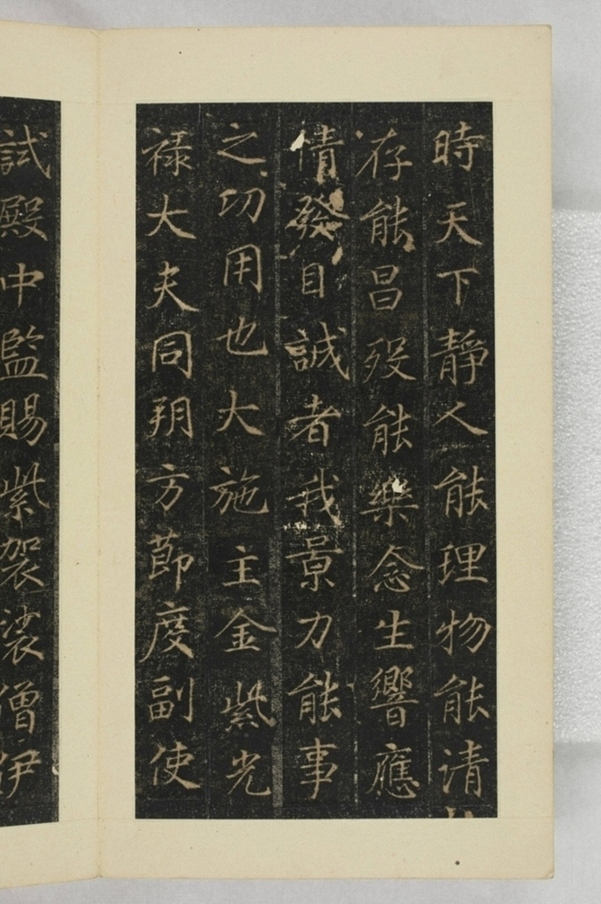 時天下靜人能理物能清
存能昌歿能樂念生響應
情發目誠者我景力能事
之功用也大施主金紫光
祿大夫同朔方節度副使
試殿中監賜紫袈裟僧伊